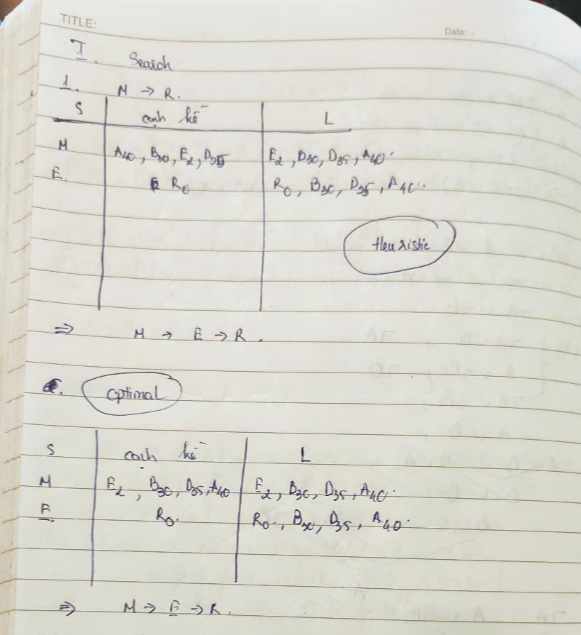 TITLE:
Date:
I. Search
1. M → R.
S cạnh kề L
M A40, B30, E2, D35 E2, B30, D35, A40.
E R0 R0, B30, D35, A40.
Heuristic
⇒ M → E → R.
optimal
S cạnh kề L
M E2, B30, D35, A40 E2, B30, D35, A40.
E R0. R0, B30, D35, A40.
⇒ M → E → R.